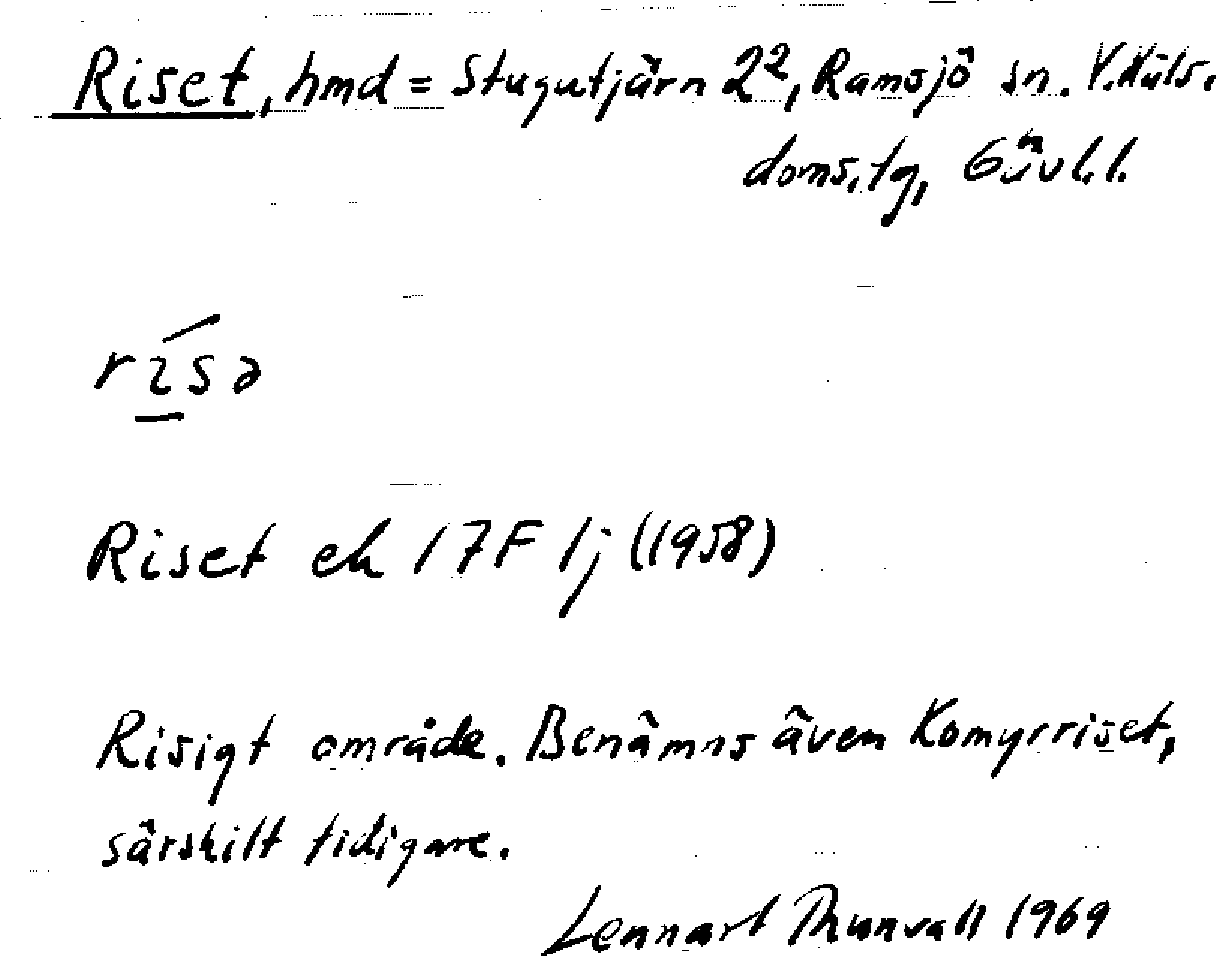 Riset, hmd = Stugutjärn 2², Ramsjö sn. V.Häls.
doms.tg, Gävl.l.
rísə
Riset ek 17F 1j (1958)
Risigt område. Benämns även Komyrriset,
särskilt tidigare.
Lennart Thunvall 1969